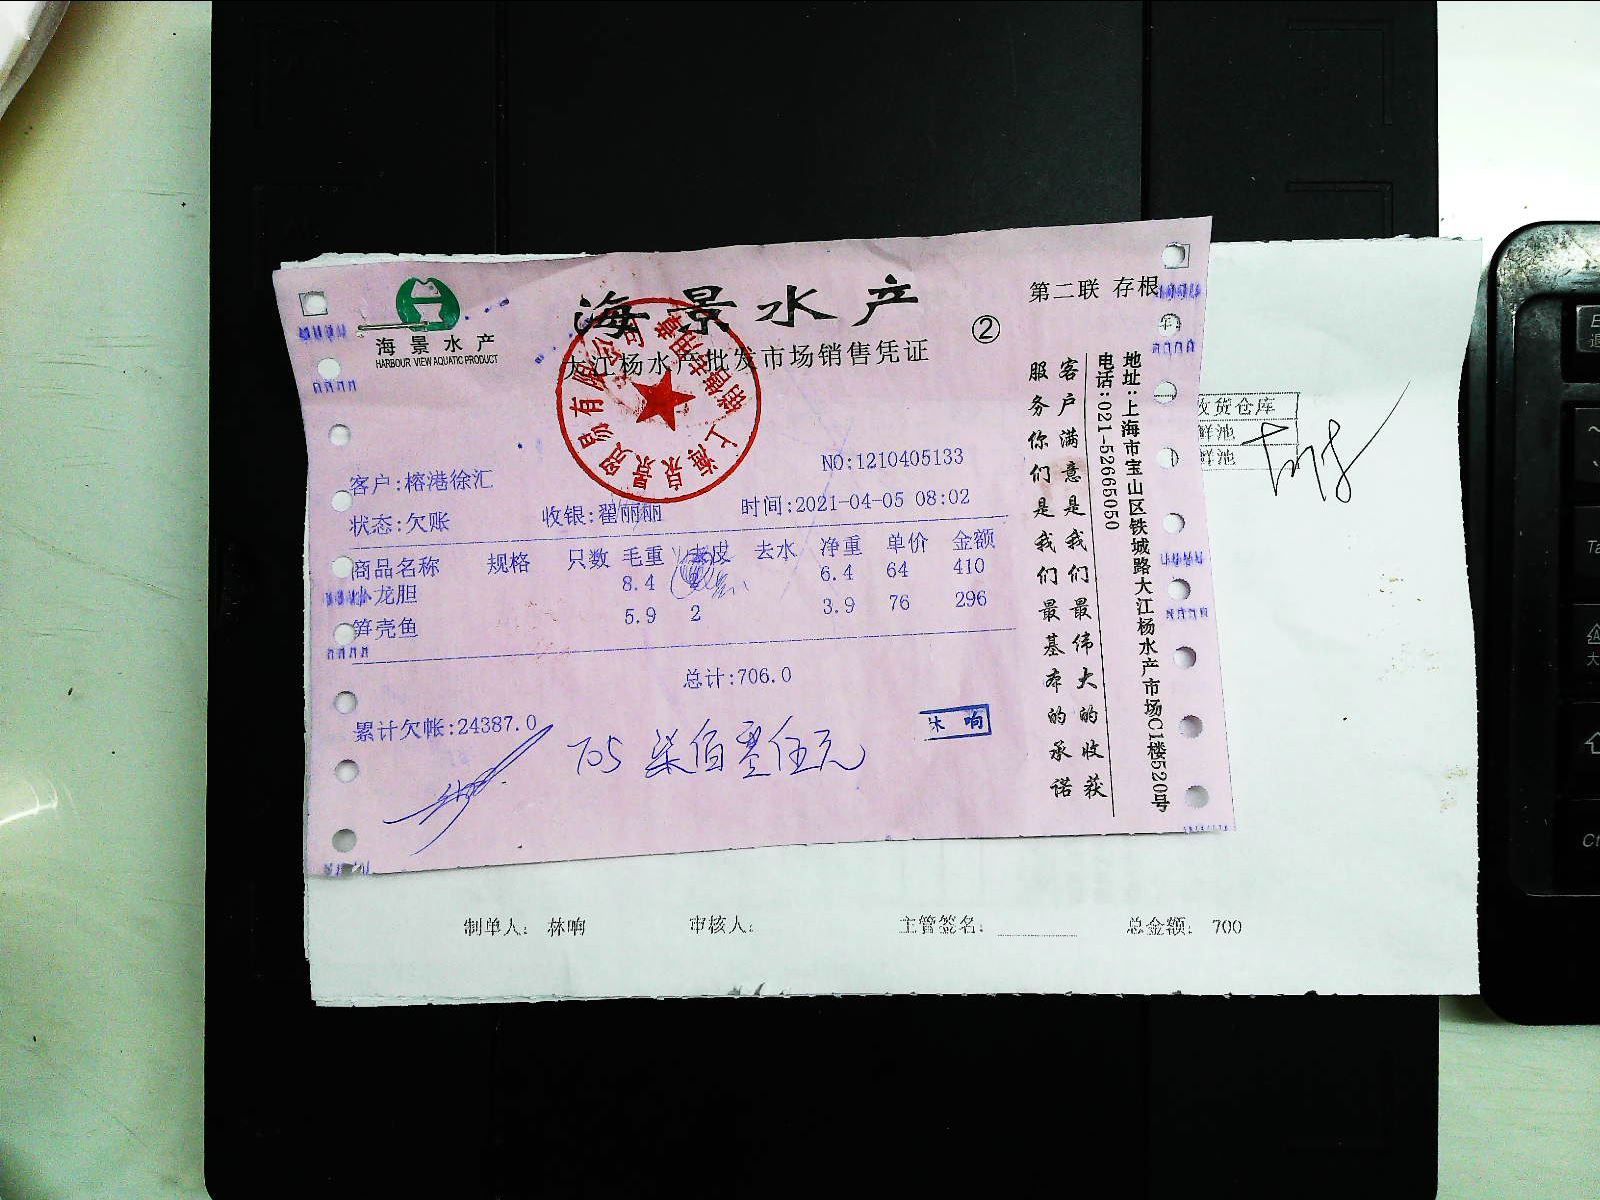 海景水产
HARBOUR VIEW AQUATIC PRODUCT
海景水产
大江杨水产批发市场销售凭证
②
第二联 存根
客户:榕港徐汇
NO:1210405133
状态:欠账 收银:翟丽丽 时间:2021-04-05 08:02
商品名称 规格 只数 毛重 去皮 去水 净重 单价 金额
小龙胆 8.4 6.4 64 410
笋壳鱼 5.9 2 3.9 76 296
总计:706.0
累计欠帐:24387.0
705 柒佰零伍元
响
地址:上海市宝山区铁城路大江杨水产市场C1楼520号
电话:021-52665050
客户满意是我们最伟大的收获
服务你们是我们最基本的承诺
收货仓库
鲜池
鲜池
制单人: 林响 审核人: 主管签名: 总金额: 700